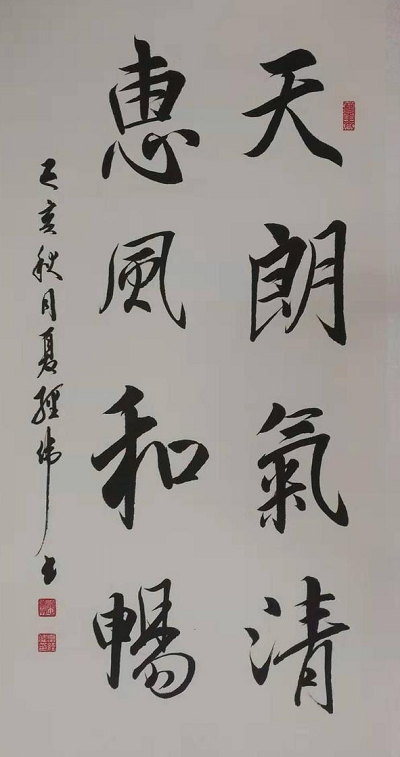 天朗氣清
惠風和暢
己亥秋月夏經緯書